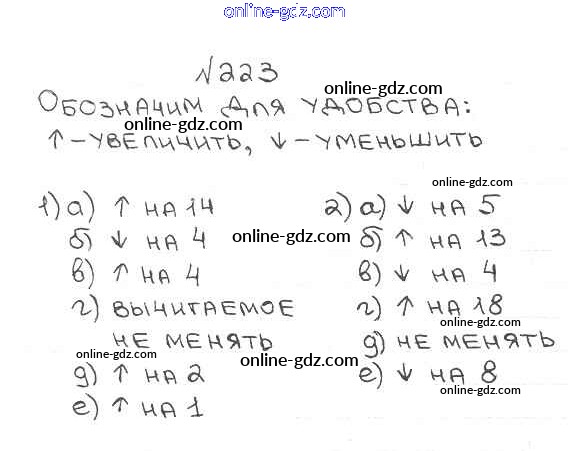 online-gdz.com
№223
online-gdz.com
Обозначим для удобства:
online-gdz.com
↑ - увеличить, ↓ - уменьшить
online-gdz.com
1) а) ↑ на 14 2) а) ↓ на 5
б) ↓ на 4 online-gdz.com б) ↑ на 13
в) ↑ на 4 в) ↓ на 4
г) вычитаемое г) ↑ на 18
online-gdz.com
не менять д) не менять
online-gdz.com online-gdz.com
д) ↑ на 2 е) ↓ на 8
online-gdz.com
е) ↑ на 1